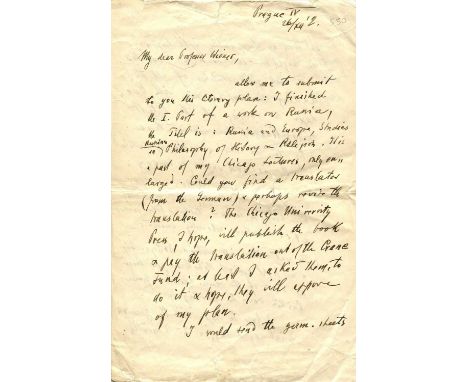 Prague IV
26/XII '2. 530
My dear Professor Wiener,
allow me to submit
to you this literary plan: I finished
the I. Part of a work on Russia,
the Titel is: Russia and Europe, Studies
in Russian Philosophy of History & Religion. It is
a part of my Chicago Lectures, only en-
larged. Could you find a translator
(from the German) & perhaps revise the
translation? The Chicago University
Press, I hope, will publish the book
& pay the translation out of the Crane
Fund; at least I asked them, to
do it & hope, they will approve
of my plan.
I would send the germ. sheets